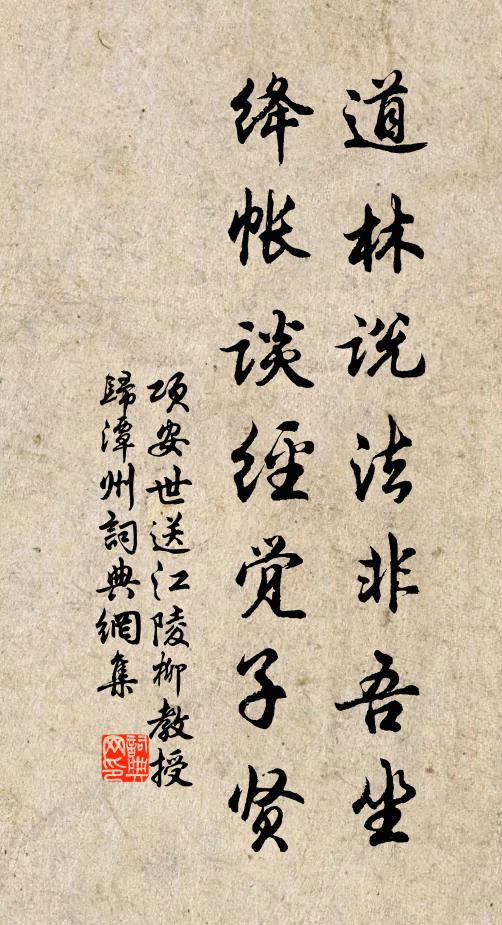 道林说法非吾坐
绛帐谈經觉子贤
项安世送江陵柳教授
歸潭州詞典網集
詞典网印